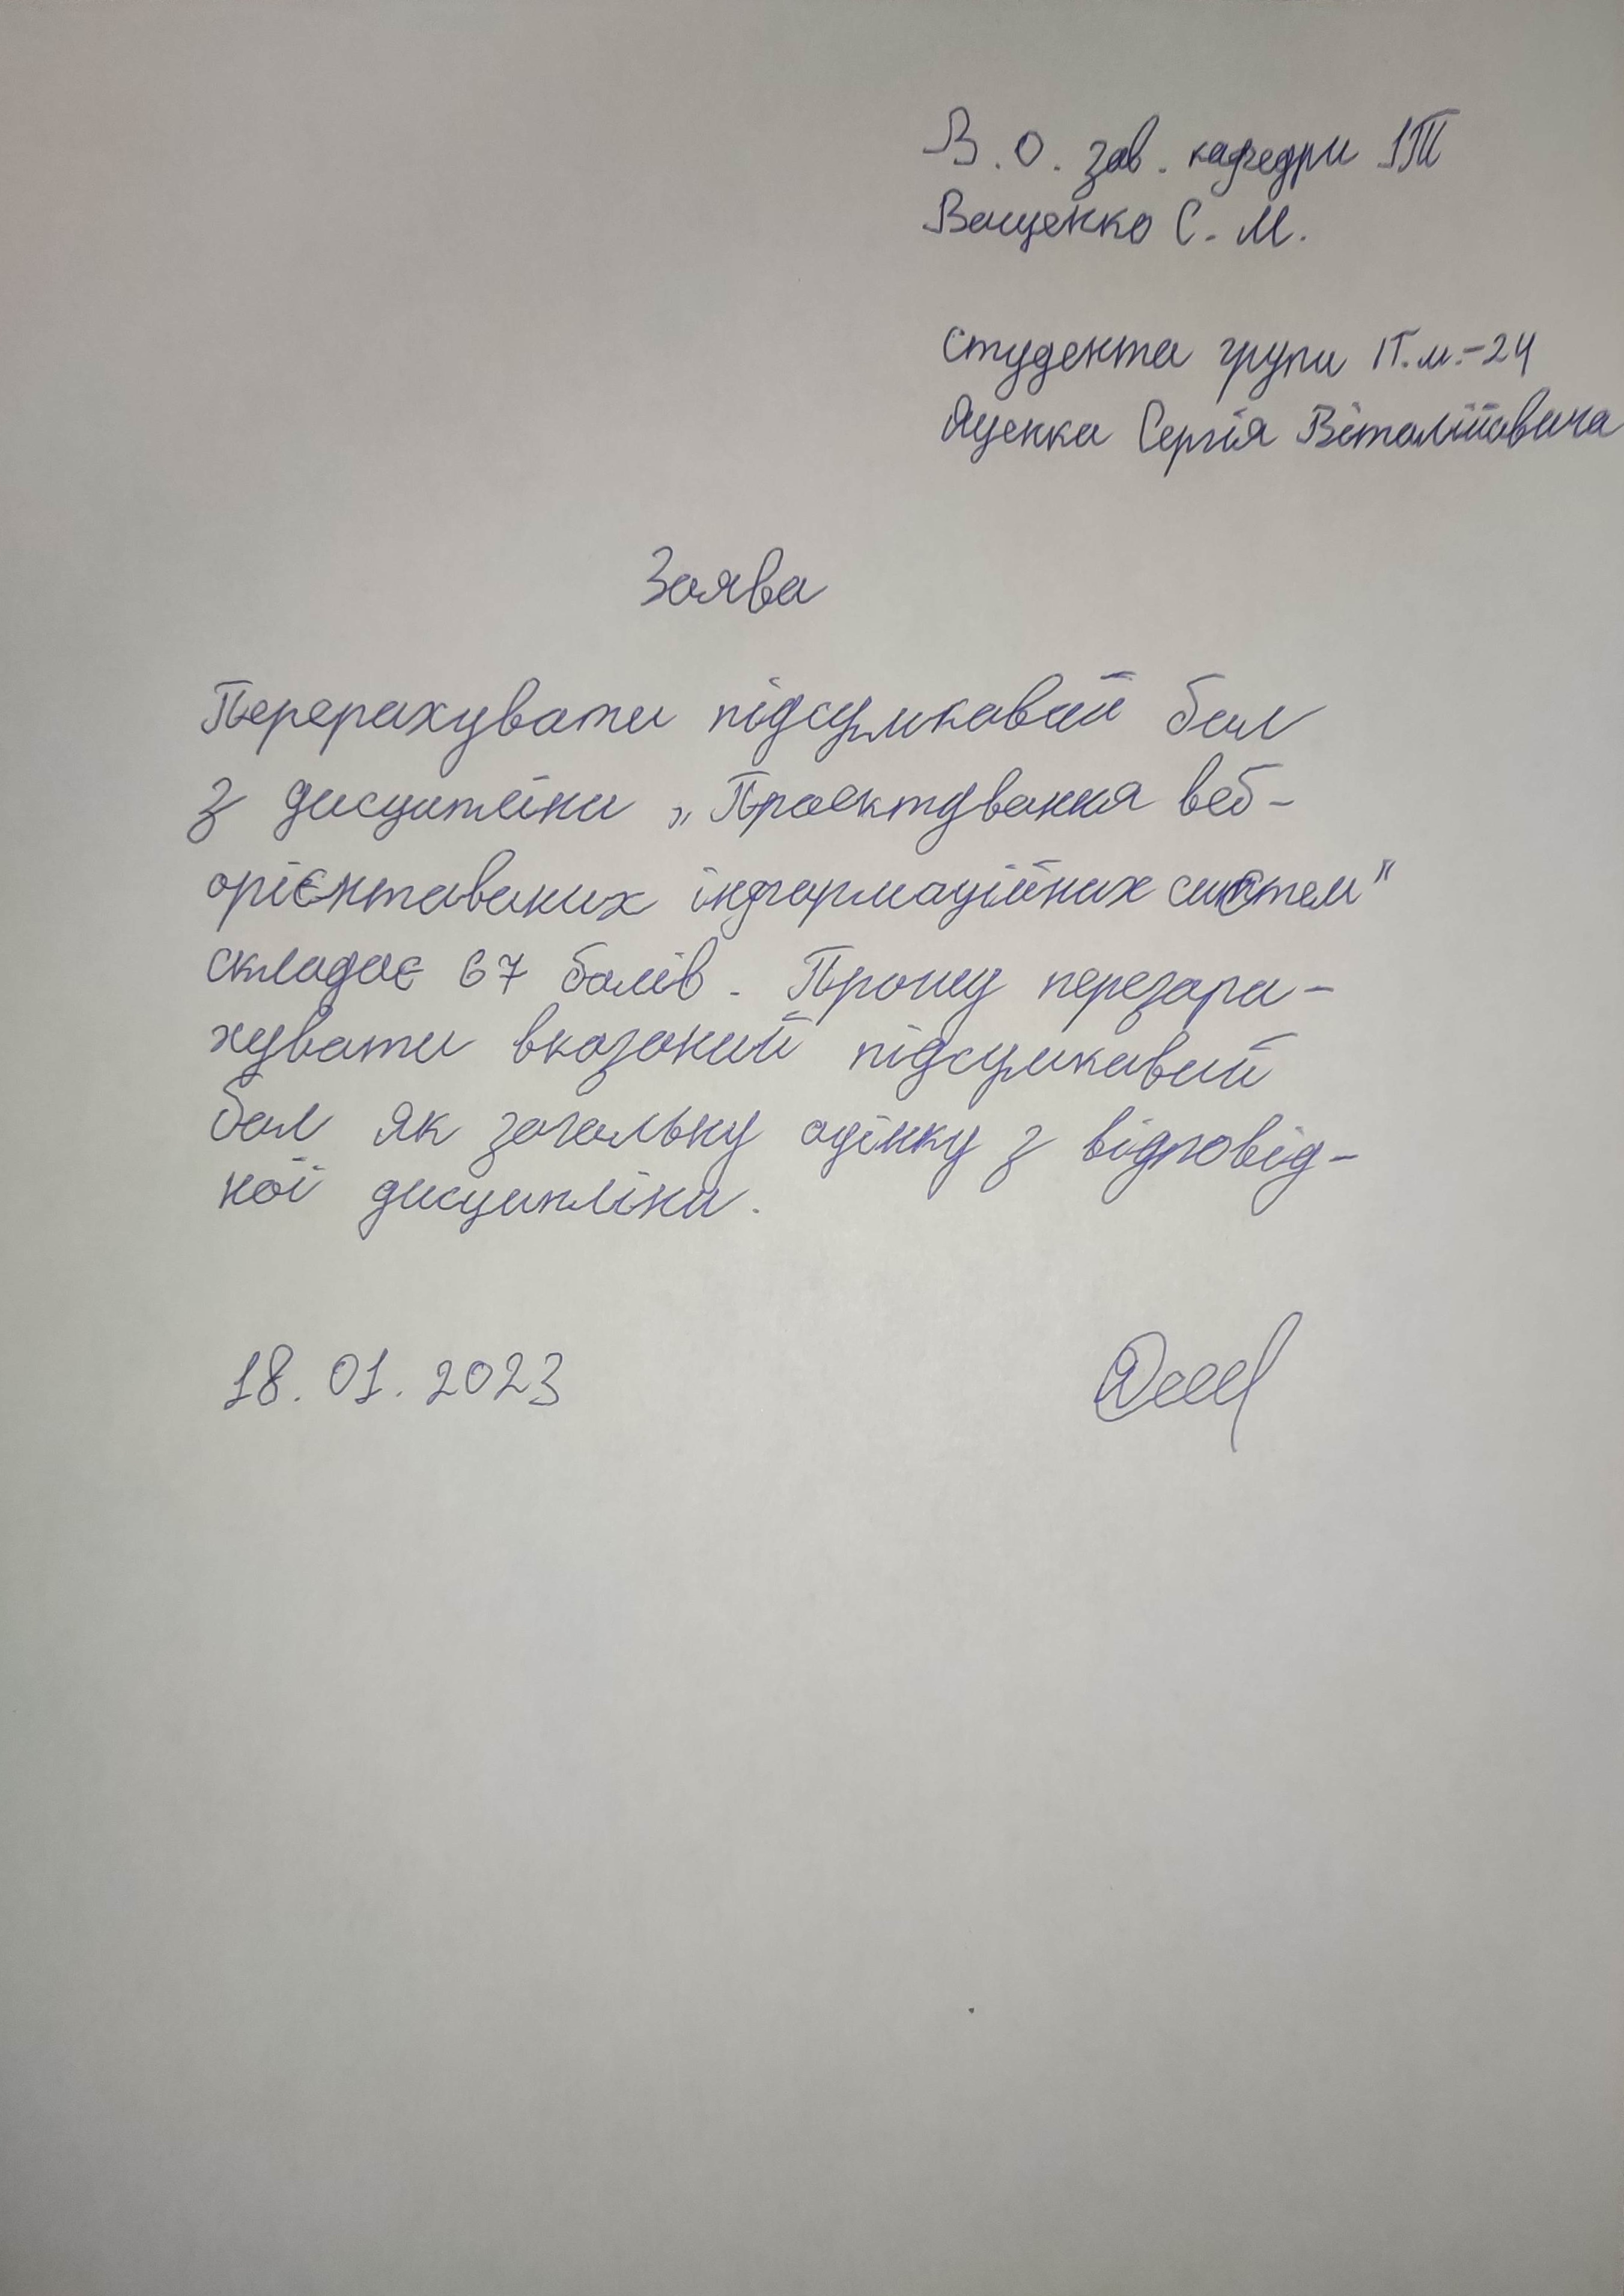 В. О. зав. кафедри ІТ
Ващенко С. М.
Студента групи ІТ.м.-24
Яценка Сергія Віталійовича
Заява
Перерахувати підсумковий бал
з дисципліни „Проектування веб-
орієнтованих інформаційних систем"
складає 67 балів. Прошу перезара-
хувати вказаний підсумковий
бал як загальну оцінку з відповід-
ної дисципліни.
18.01.2023